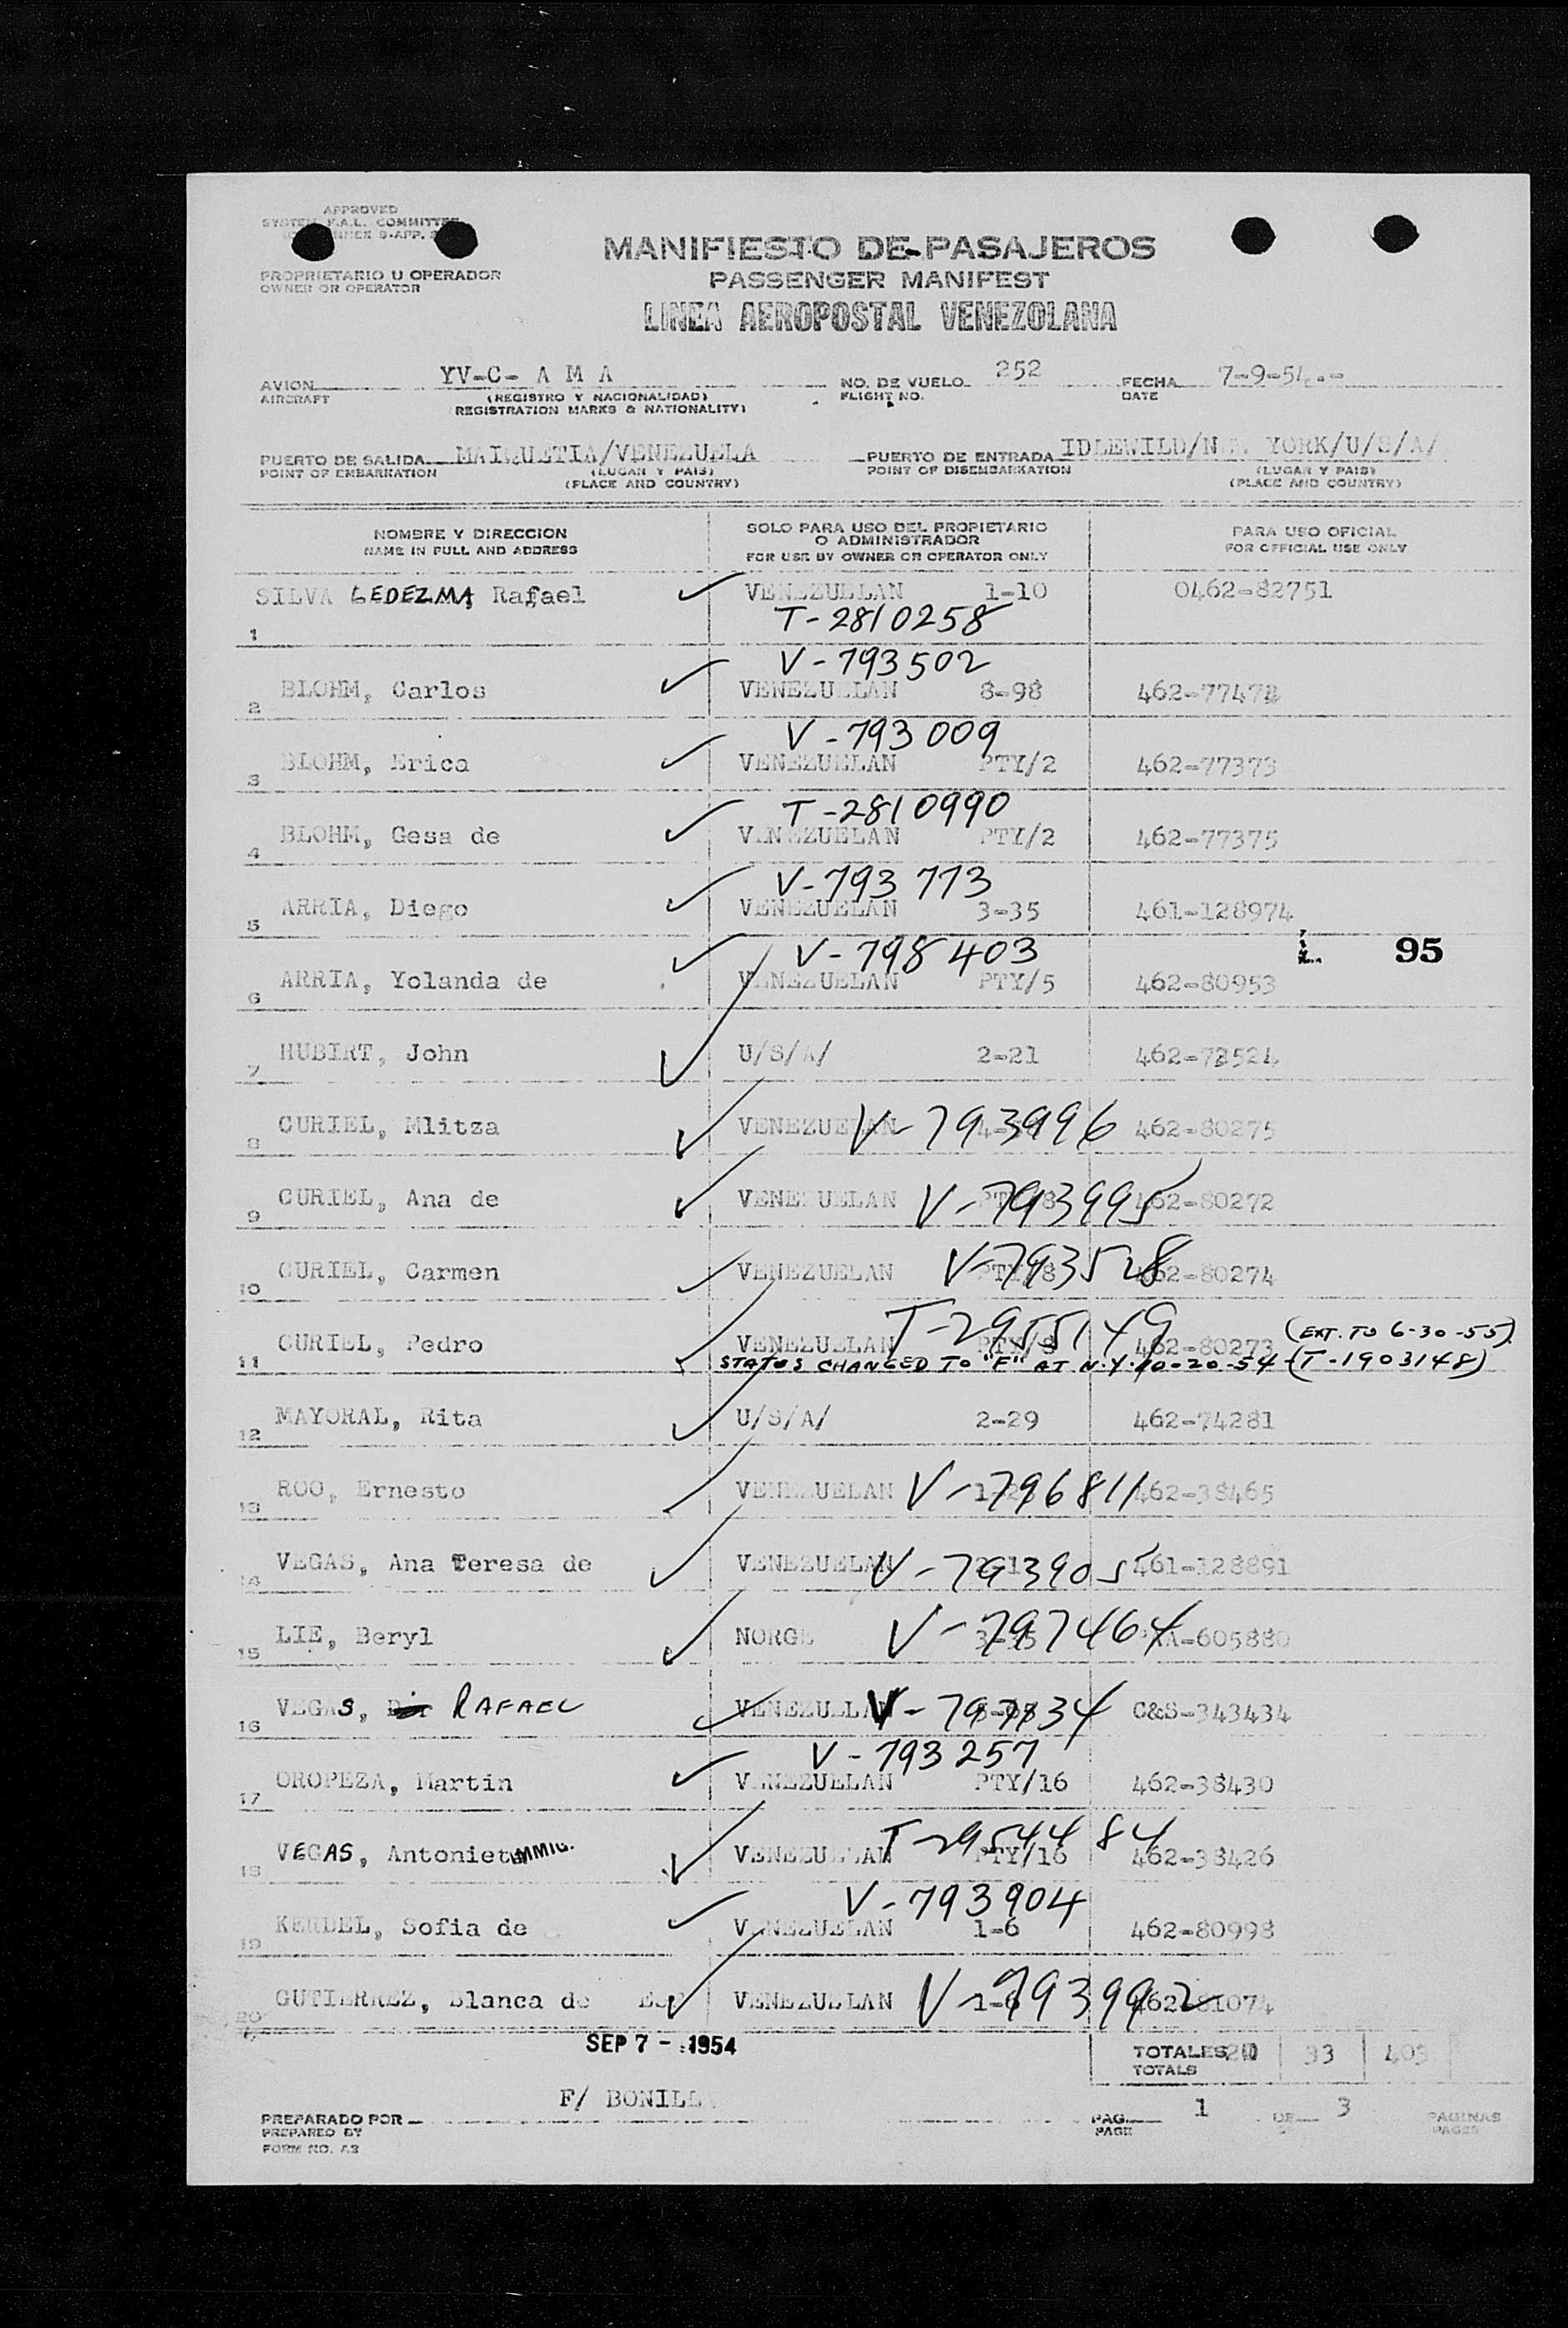 APPROVED
SYSTEM F.A.L. COMMITTEE
ANNEX 9-APP.
PROPRIETARIO U OPERADOR
OWNER OR OPERATOR
MANIFIESTO DE PASAJEROS
PASSENGER MANIFEST
LINEA AEROPOSTAL VENEZOLANA
AVION YV-C- A M A NO. DE VUELO 252 FECHA 7-9-54.-
AIRCRAFT (REGISTRO Y NACIONALIDAD) FLIGHT NO. DATE
(REGISTRATION MARKS & NATIONALITY)
PUERTO DE SALIDA MAIQUETIA/VENEZUELA PUERTO DE ENTRADA IDLEWILD/N. YORK/U/S/A/
POINT OF EMBARKATION (LUGAR Y PAIS) POINT OF DISEMBARKATION (LUGAR Y PAIS)
(PLACE AND COUNTRY) (PLACE AND COUNTRY)
NOMBRE Y DIRECCION SOLO PARA USO DEL PROPIETARIO PARA USO OFICIAL
NAME IN FULL AND ADDRESS O ADMINISTRADOR FOR OFFICIAL USE ONLY
FOR USE BY OWNER OR OPERATOR ONLY
SILVA LEDEZMA, Rafael VENEZUELAN 1-10 0462-82751
1 T-2810258
V-793502
2 BLOHM, Carlos VENEZUELAN 8-98 462-77472
V-793009
3 BLOHM, Erica VENEZUELAN PTY/2 462-77373
T-2810990
4 BLOHM, Gesa de VENEZUELAN PTY/2 462-77375
V-793773
5 ARRIA, Diego VENEZUELAN 3-35 461-128974
V-798403 95
6 ARRIA, Yolanda de VENEZUELAN PTY/5 462-80953
7 HUBIRT, John U/S/A/ 2-21 462-72524
8 CURIEL, Mlitza VENEZUELAN V-793996 462-80275
9 CURIEL, Ana de VENEZUELAN V-793995 462-80272
10 CURIEL, Carmen VENEZUELAN V-793528 462-80274
T-2955149 (EXT. TO 6-30-55).
11 CURIEL, Pedro VENEZUELAN PTY/8 462-80273
STATUS CHANGED TO "F" AT N.Y. 10-20-54 (T-1903148)
12 MAYORAL, Rita U/S/A/ 2-29 462-74281
13 ROO, Ernesto VENEZUELAN V-796811 462-38465
14 VEGAS, Ana Teresa de VENEZUELAN V-793905 461-128891
15 LIE, Beryl NORGE V-797464 PAA-605880
16 VEGAS, RAFAEL VENEZUELAN V-797834 C&S-343434
V-793257
17 OROPEZA, Martin VENEZUELAN PTY/16 462-38430
T-2954484
18 VEGAS, Antonieta IMMIG. VENEZUELAN PTY/16 462-38426
V-793904
19 KERDEL, Sofia de VENEZUELAN 1-6 462-80998
20 GUTIERREZ, Blanca de VENEZUELAN 1-6 V-793992 462-81074
SEP 7 - 1954
TOTALES 20 33 403
TOTALS
F/ BONILL
PREPARADO POR PAG. 1 DE 3 PAGINAS
PREPARED BY PAGE PAGES
FORM NO. A3